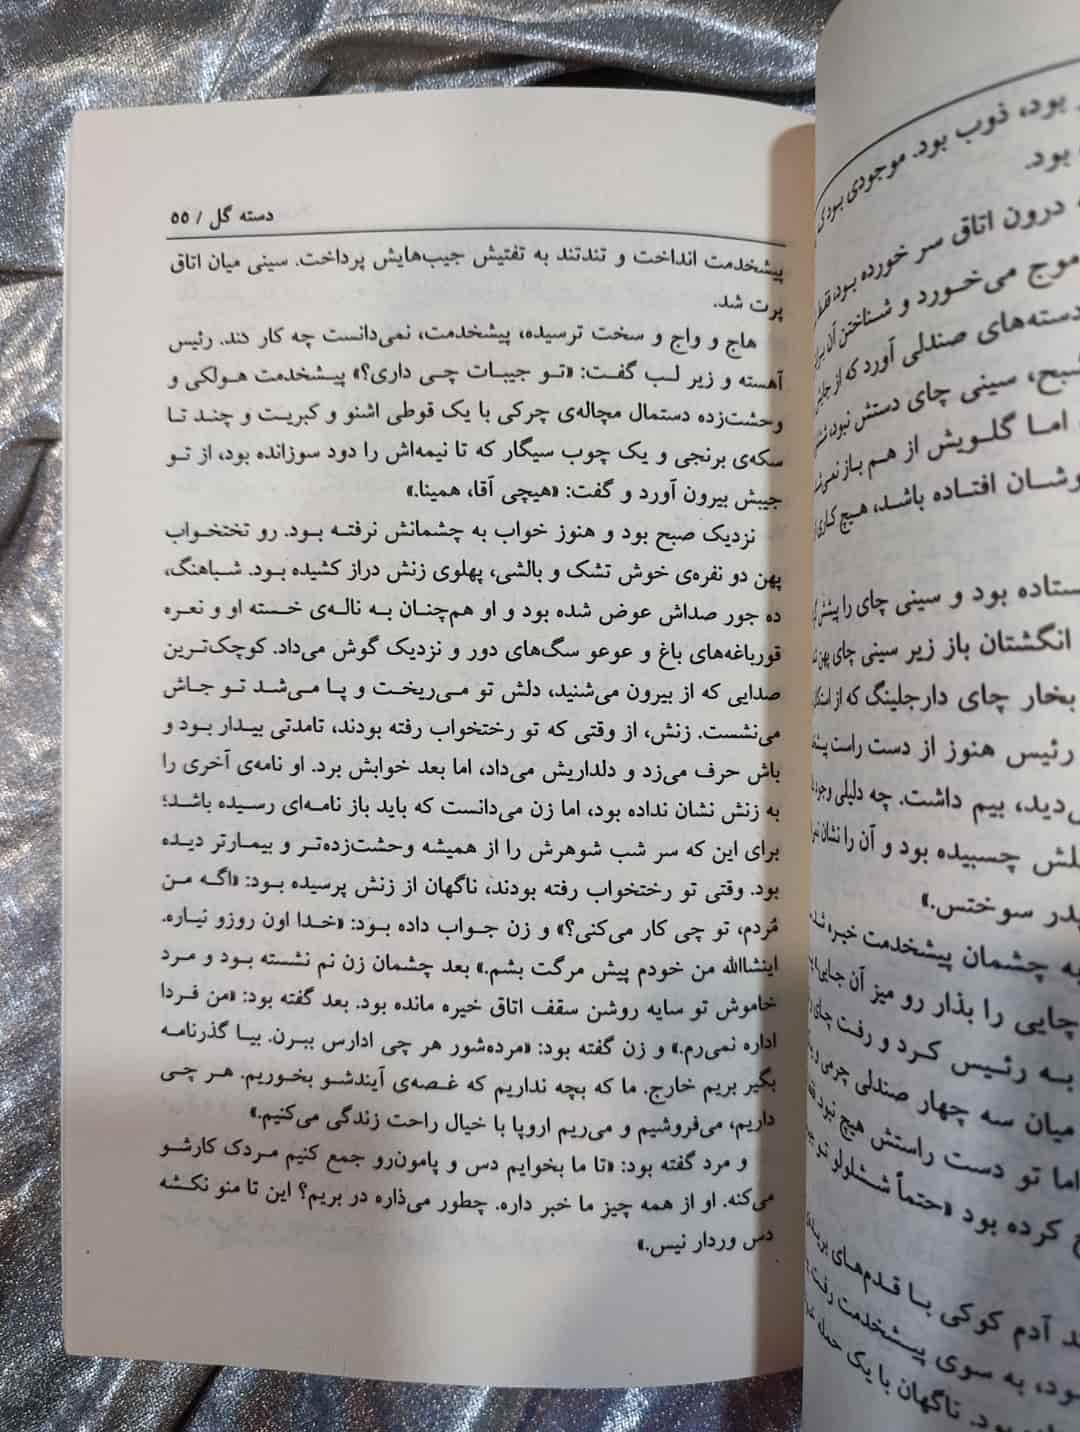 دسته گل / ۵۵
پیشخدمت انداخت و تندتند به تفتیش جیب‌هایش پرداخت. سینی میان اتاق
پرت شد.
هاج و واج و سخت ترسیده، پیشخدمت، نمی‌دانست چه کار کند. رئیس
آهسته و زیر لب گفت: «تو جیبات چی داری؟» پیشخدمت هولکی و
وحشت‌زده دستمال مچاله‌ی چرکی با یک قوطی اشنو و کبریت و چند تا
سکه‌ی برنجی و یک چوب سیگار که تا نیمه‌اش را دود سوزانده بود، از تو
جیبش بیرون آورد و گفت: «هیچی آقا، همینا.»
نزدیک صبح بود و هنوز خواب به چشمانش نرفته بود. رو تختخواب
پهن دو نفره‌ی خوش تشک و بالشی، پهلوی زنش دراز کشیده بود. شباهنگ،
ده جور صداش عوض شده بود و او هم‌چنان به ناله‌ی خسته او و نعره
قورباغه‌های باغ و عوعو سگ‌های دور و نزدیک گوش می‌داد. کوچک‌ترین
صدایی که از بیرون می‌شنید، دلش تو می‌ریخت و پا می‌شد تو جاش
می‌نشست. زنش، از وقتی که تو رختخواب رفته بودند، تامدتی بیدار بود و
باش حرف می‌زد و دلداریش می‌داد، اما بعد خوابش برد. او نامه‌ی آخری را
به زنش نشان نداده بود، اما زن می‌دانست که باید باز نامه‌ای رسیده باشد؛
برای این که سر شب شوهرش را از همیشه وحشت‌زده‌تر و بیمارتر دیده
بود. وقتی تو رختخواب رفته بودند، ناگهان از زنش پرسیده بود: «اگه من
مُردم، تو چی کار می‌کنی؟» و زن جواب داده بود: «خدا اون روزو نیاره.
اینشاالله من خودم پیش مرگت بشم.» بعد چشمان زن نم نشسته بود و مرد
خاموش تو سایه روشن سقف اتاق خیره مانده بود. بعد گفته بود: «من فردا
اداره نمی‌رم.» و زن گفته بود: «مرده‌شور هر چی ادارس ببرن. بیا گذرنامه
بگیر بریم خارج. ما که بچه نداریم که غصه‌ی آیندشو بخوریم. هر چی
داریم، می‌فروشیم و می‌ریم اروپا با خیال راحت زندگی می‌کنیم.»
و مرد گفته بود: «تا ما بخوایم دس و پامون‌رو جمع کنیم مردک کارشو
می‌کنه. او از همه چیز ما خبر داره. چطور می‌ذاره در بریم؟ این تا منو نکشه
دس وردار نیس.»
بود، ذوب بود. موجودی بود
بود.
درون اتاق سر خورده بود، فقط
موج می‌خورد و شناختن آن برای
دسته‌های صندلی آورد که از جایش
سینی چای دستش نبود،
اما گلویش از هم باز نمی‌شد
افتاده باشد، هیچ کاری
بود و سینی چای را پیش
انگشتان باز زیر سینی چای پهن
بخار چای دارجلینگ که از
رئیس هنوز از دست راست
بیم داشت. چه دلیلی وجود
چسبیده بود و آن را نشان
سوختس.»
به چشمان پیشخدمت خیره شد
چایی را بذار رو میز آن جایی
به رئیس کرد و رفت چای
میان سه چهار صندلی چرمی
اما تو دست راستش هیچ نبود
کرده بود «حتماً ششلولو تو
آدم کوکی با قدم‌های
به سوی پیشخدمت رفت
بود. ناگهان با یک حمله